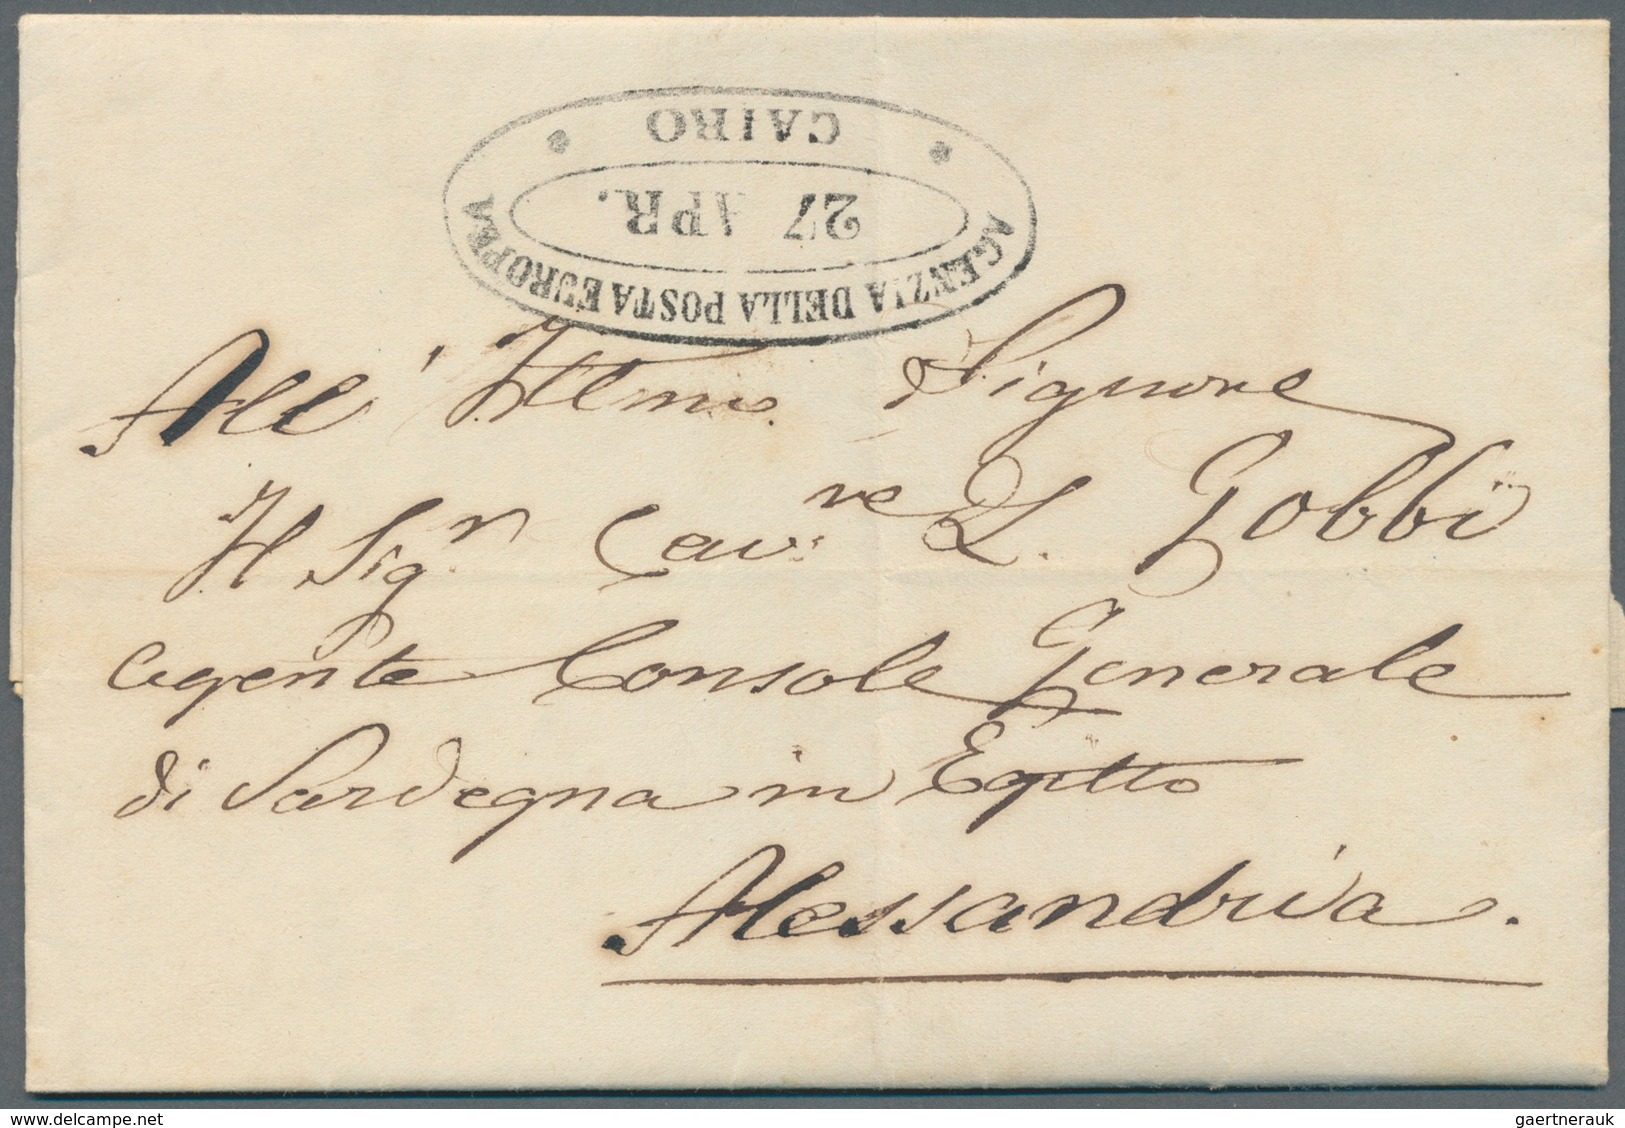 AGENZIA DELLA POSTA EUROPEA
27 APR.
CAIRO
All' Illmo. Signore
Il Sigr. Cav.re L. Gobbi
Agente Console Generale
di Sardegna in Egitto
Alessandria.
gaertnerauk